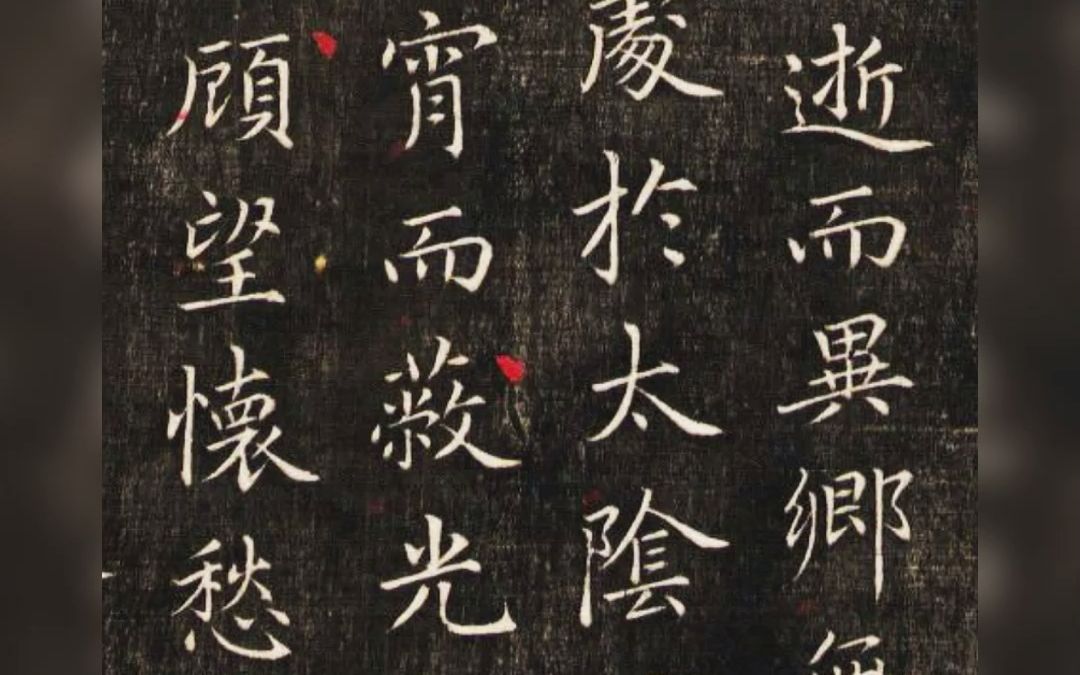 逝而異鄉無
處於太陰
宵而蔽光
顧望懷愁